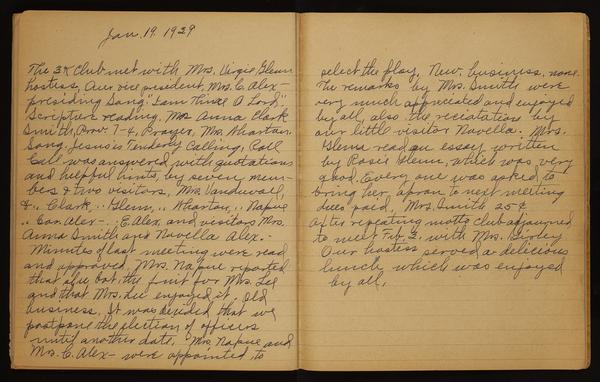 Jan. 19. 1929
The 3K Club met with Mrs. Virgie Glenn
hostess, Our vice president, Mrs. C. Alex-
presiding Song "I am Thine O Lord,"
Scripture reading, Mrs Anna Clark
Smith, Prov. 7-4, Prayer, Mrs. Wharton.
Song. Jesus is Tenderly Calling, Call
Call was answered with quotations
and helpful hints by seven mem-
bers & two visitors. Mrs. Vanduvall,
" Clark, " Glenn, " Wharton, " Napue
" Con. Alex- " E. Alex, and visitors, Mrs.
Anna Smith and Novella Alex.-
Minutes of last meeting were read
and approved. Mrs. Napue reported
that she got the fruit for Mrs. Lee
and that Mrs. Lee enjoyed it. Old
business. It was decided that we
postpone the election of officers
until another date. Mrs. Napue and
Mrs. C. Alex- were appointed to
select the play. New business, none.
The remarks by Mrs. Smith were
very much appreciated and enjoyed
by all, also the recitation by
our little visitor Novella. Mrs.
Glenn read an essay written
by Rosie Glenn, which was very
good. Every one was asked to
bring her apron to next meeting
dues paid, Mrs. Smith 25¢
After repeating motto Club adjourned
to meet Feb. 2. with Mrs. Girley
Our hostess served a delicious
lunch which was enjoyed
by all.